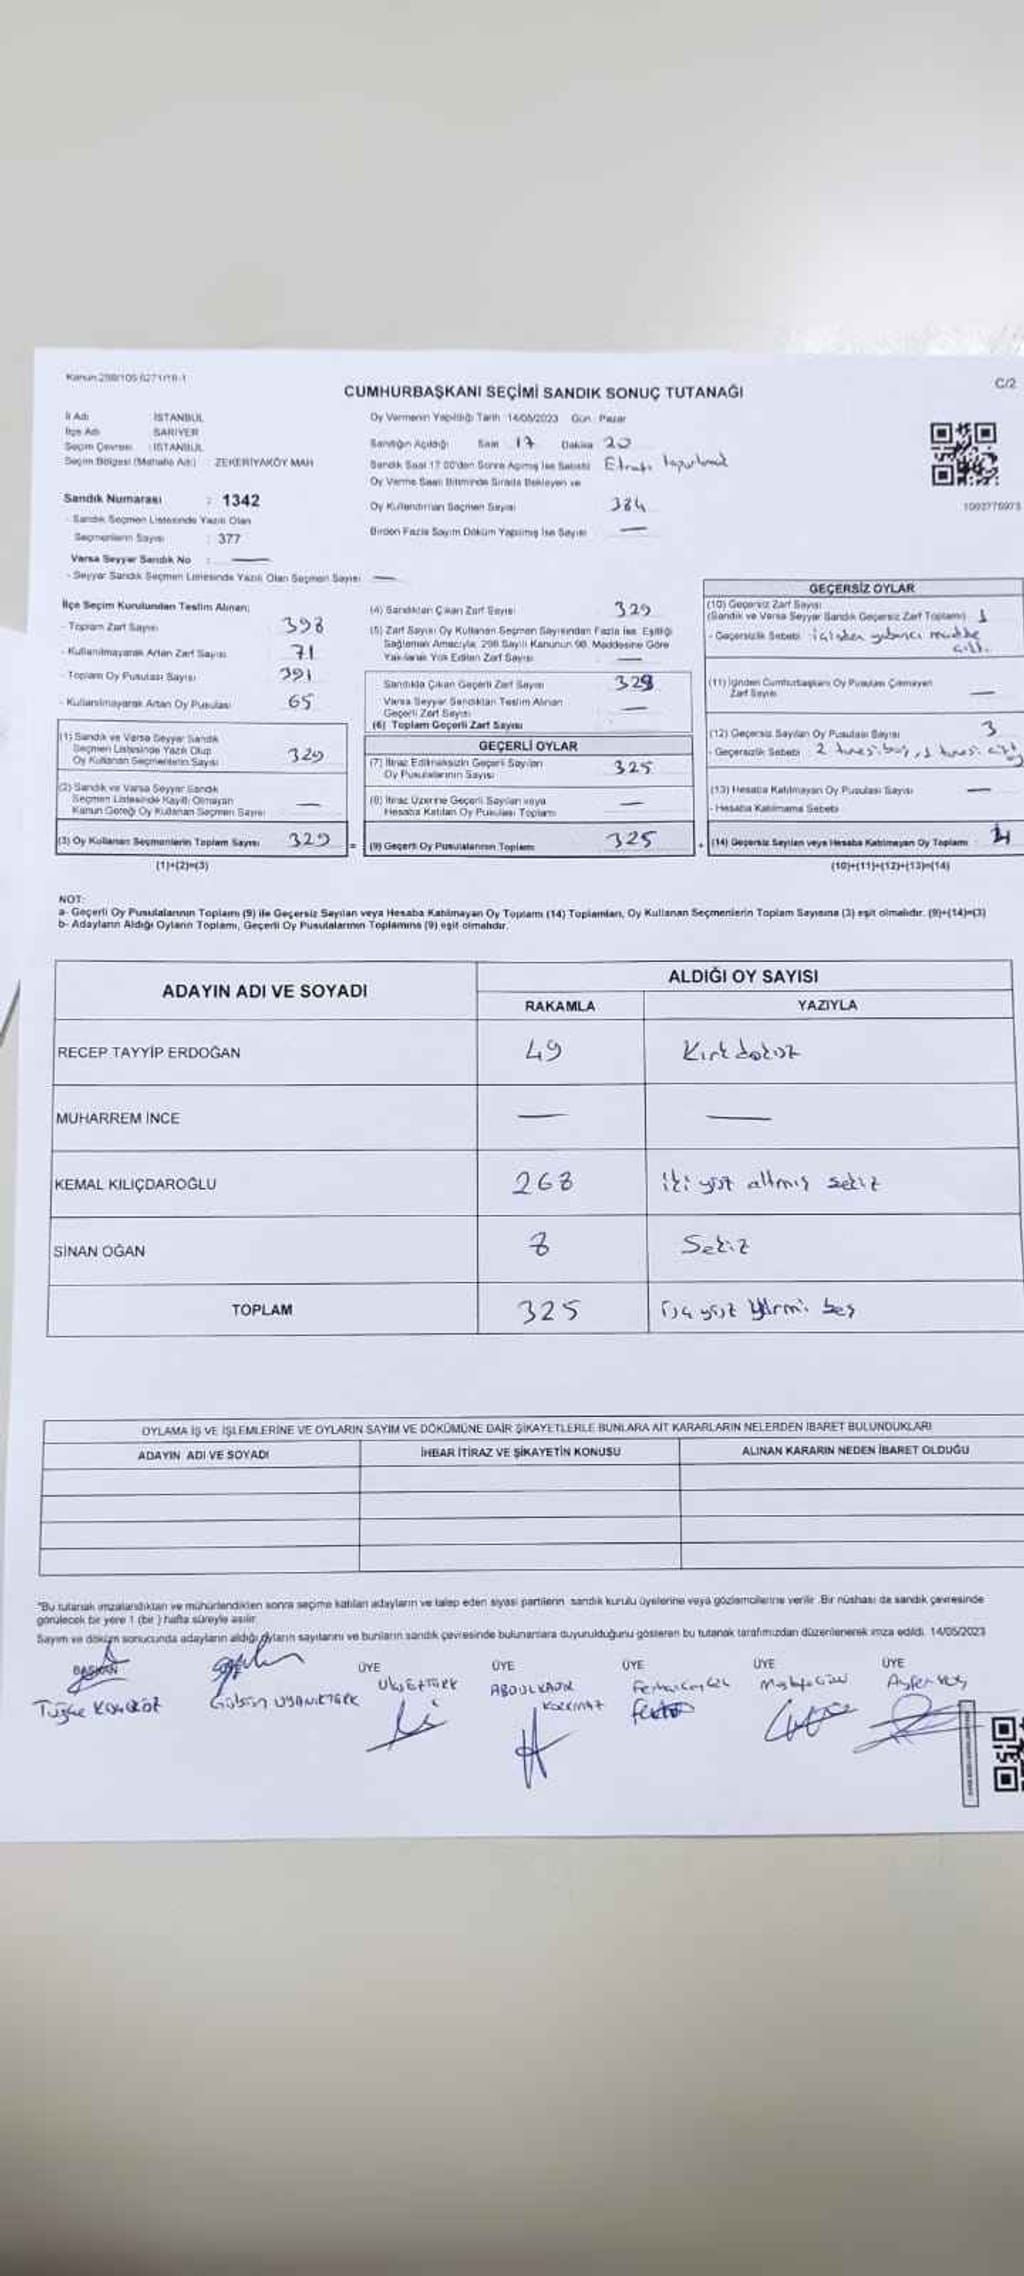 Kanun:298/105,6271/18-1
C/2
CUMHURBAŞKANI SEÇİMİ SANDIK SONUÇ TUTANAĞI
İl Adı : İSTANBUL
İlçe Adı : SARIYER
Seçim Çevresi : İSTANBUL
Seçim Bölgesi (Mahalle Adı) : ZEKERİYAKÖY MAH
Sandık Numarası : 1342
- Sandık Seçmen Listesinde Yazılı Olan
Seçmenlerin Sayısı : 377
Varsa Seyyar Sandık No : —
- Seyyar Sandık Seçmen Listesinde Yazılı Olan Seçmen Sayısı —
Oy Vermenin Yapıldığı Tarih : 14/05/2023 Gün : Pazar
Sandığın Açıldığı Saat 17 Dakika 20
Sandık Saat 17:00'den Sonra Açılmış İse Sebebi
Oy Verme Saati Bitiminde Sırada Bekleyen ve
Oy Kullandırılan Seçmen Sayısı 384
Birden Fazla Sayım Döküm Yapılmış İse Sayısı —
İlçe Seçim Kurulundan Teslim Alınan:
- Toplam Zarf Sayısı 398
- Kullanılmayarak Artan Zarf Sayısı 71
- Toplam Oy Pusulası Sayısı 391
- Kullanılmayarak Artan Oy Pusulası 65
(1) Sandık ve Varsa Seyyar Sandık
Seçmen Listesinde Yazılı Olup
Oy Kullanan Seçmenlerin Sayısı 329
(2) Sandık ve Varsa Seyyar Sandık
Seçmen Listesinde Kayıtlı Olmayan
Kanun Gereği Oy Kullanan Seçmen Sayısı —
(3) Oy Kullanan Seçmenlerin Toplam Sayısı 329 =
(1)+(2)=(3)
(4) Sandıktan Çıkan Zarf Sayısı 329
(5) Zarf Sayısı Oy Kullanan Seçmen Sayısından Fazla İse, Eşitliği
Sağlamak Amacıyla, 298 Sayılı Kanunun 98. Maddesine Göre
Yakılarak Yok Edilen Zarf Sayısı —
Sandıkta Çıkan Geçerli Zarf Sayısı 328
Varsa Seyyar Sandıktan Teslim Alınan
Geçerli Zarf Sayısı —
(6) Toplam Geçerli Zarf Sayısı
GEÇERLİ OYLAR
(7) İtiraz Edilmeksizin Geçerli Sayılan
Oy Pusulalarının Sayısı 325
(8) İtiraz Üzerine Geçerli Sayılan veya
Hesaba Katılan Oy Pusulası Toplamı —
(9) Geçerli Oy Pusulalarının Toplamı 325 +
GEÇERSİZ OYLAR
(10) Geçersiz Zarf Sayısı
(Sandık ve Varsa Seyyar Sandık Geçersiz Zarf Toplamı) 1
- Geçersizlik Sebebi içinden yabancı madde
çıktı.
(11) İçinden Cumhurbaşkanı Oy Pusulası Çıkmayan
Zarf Sayısı —
(12) Geçersiz Sayılan Oy Pusulası Sayısı 3
- Geçersizlik Sebebi 2 tanesi boş, 1 tanesi
(13) Hesaba Katılmayan Oy Pusulası Sayısı —
- Hesaba Katılmama Sebebi
(14) Geçersiz Sayılan veya Hesaba Katılmayan Oy Toplamı 4
(10)+(11)+(12)+(13)=(14)
NOT:
a- Geçerli Oy Pusulalarının Toplamı (9) ile Geçersiz Sayılan veya Hesaba Katılmayan Oy Toplamı (14) Toplamları, Oy Kullanan Seçmenlerin Toplam Sayısına (3) eşit olmalıdır. (9)+(14)=(3)
b- Adayların Aldığı Oyların Toplamı, Geçerli Oy Pusulalarının Toplamına (9) eşit olmalıdır.
ADAYIN ADI VE SOYADI
ALDIĞI OY SAYISI
RAKAMLA YAZIYLA
RECEP TAYYİP ERDOĞAN 49 Kırk dokuz
MUHARREM İNCE — —
KEMAL KILIÇDAROĞLU 268 iki yüz altmış sekiz
SİNAN OĞAN 8 Sekiz
TOPLAM 325 üç yüz yirmi beş
OYLAMA İŞ VE İŞLEMLERİNE VE OYLARIN SAYIM VE DÖKÜMÜNE DAİR ŞİKAYETLERLE BUNLARA AİT KARARLARIN NELERDEN İBARET BULUNDUKLARI
ADAYIN ADI VE SOYADI İHBAR İTİRAZ VE ŞİKAYETİN KONUSU ALINAN KARARIN NEDEN İBARET OLDUĞU
"Bu tutanak imzalandıktan ve mühürlendikten sonra seçime katılan adayların ve talep eden siyasi partilerin sandık kurulu üyelerine veya gözlemcilerine verilir. Bir nüshası da sandık çevresinde
görülecek bir yere 1 (bir ) hafta süreyle asılır.
Sayım ve döküm sonucunda adayların aldığı oyların sayılarını ve bunların sandık çevresinde bulunanlara duyurulduğunu gösteren bu tutanak tarafımızdan düzenlenerek imza edildi. 14/05/2023
BAŞKAN ÜYE ÜYE ÜYE ÜYE ÜYE
Tuğçe Gülsün UYANIKTÜRK ABDULKADİR
KORKMAZ